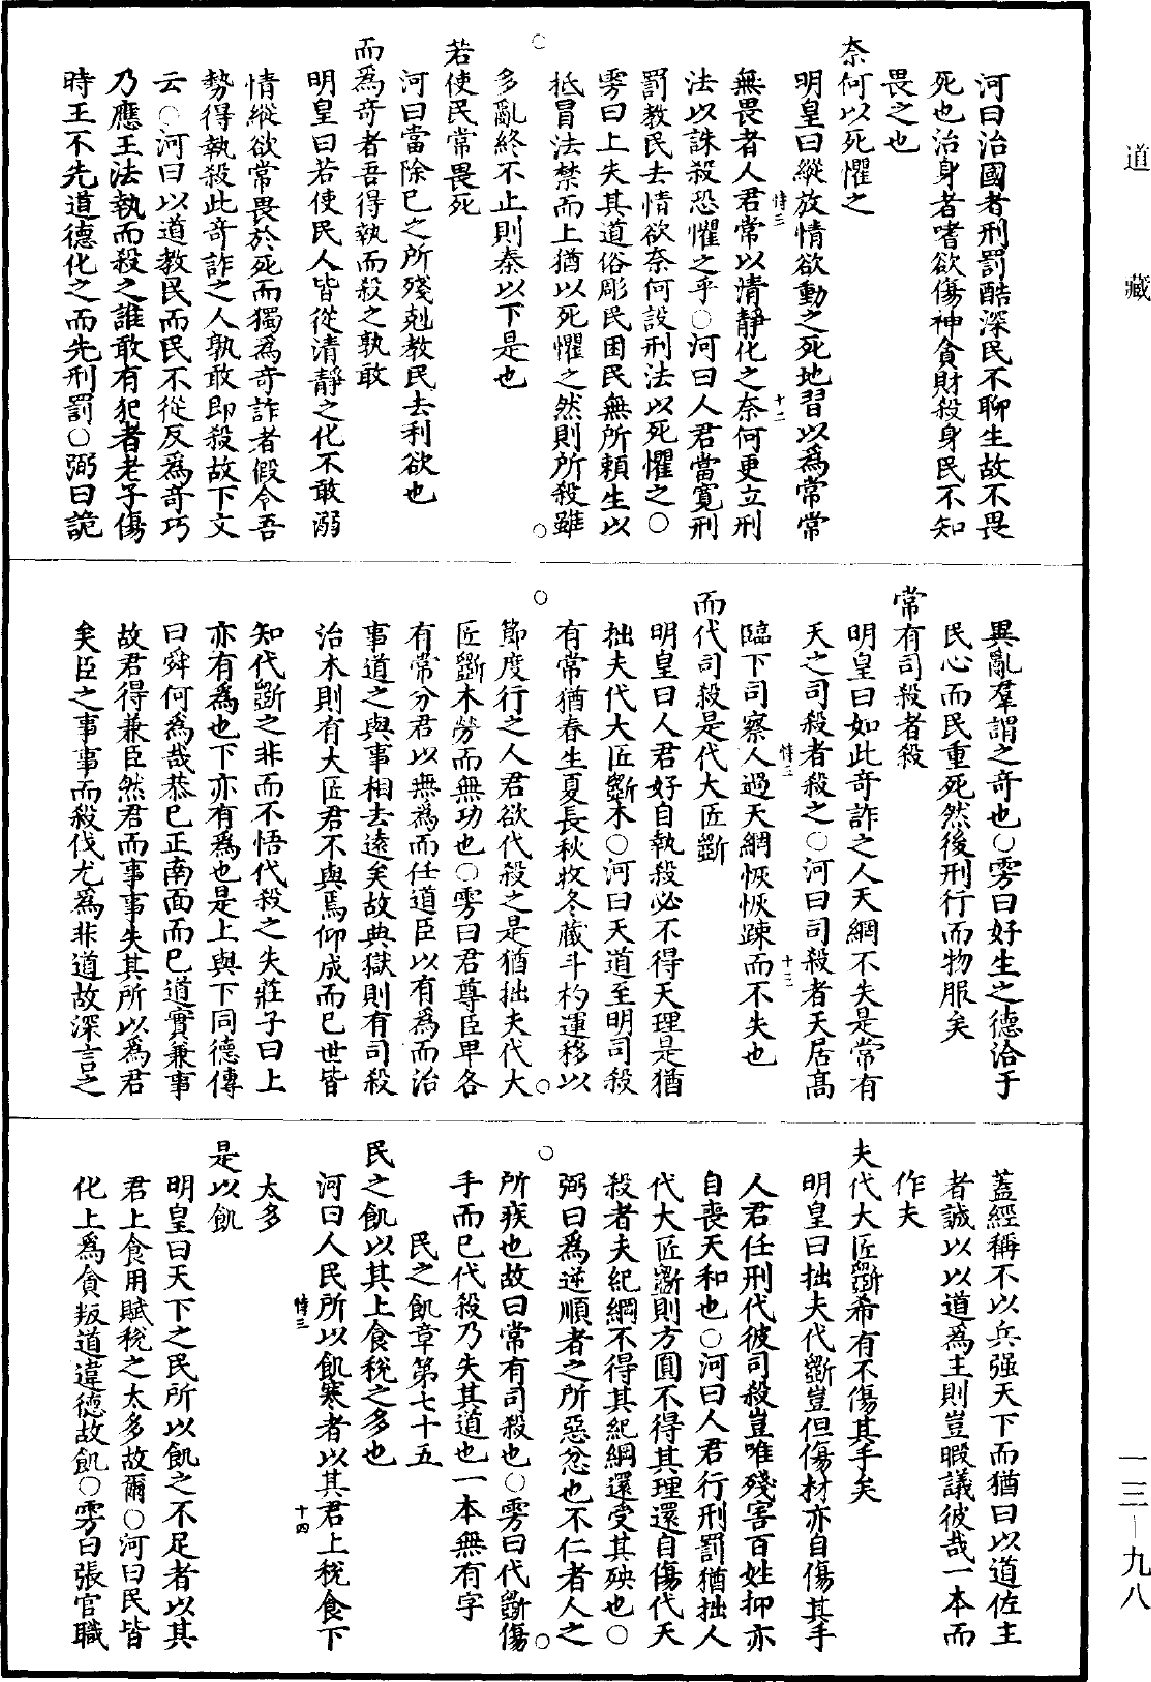 道藏
河曰治國者刑罰酷深民不聊生故不畏
死也治身者嗜欲傷神貪財殺身民不知
畏之也
奈何以死懼之
明皇曰縱放情欲動之死地習以為常常
無畏者人君常以清靜化之奈何更立刑
法以誅殺恐懼之乎○河曰人君當寬刑
罰教民去情欲奈何設刑法以死懼之○
雱曰上失其道俗彫民困民無所賴生以
抵冒法禁而上猶以死懼之然則所殺雖
多亂終不止則秦以下是也
若使民常畏死
河曰當除已之所殘剋教民去利欲也
而為奇者吾得執而殺之孰敢
明皇曰若使民人皆從清靜之化不敢溺
情縱欲常畏於死而獨為奇詐者假令吾
勢得執殺此奇詐之人孰敢即殺故下文
云○河曰以道教民而民不從反為奇巧
乃應王法執而殺之誰敢有犯者老子傷
時王不先道德化之而先刑罰○弼曰詭
異亂羣謂之奇也○雱曰好生之德洽于
民心而民重死然後刑行而物服矣
常有司殺者殺
明皇曰如此奇詐之人天網不失是常有
天之司殺者殺之○河曰司殺者天居高
臨下司察人過天網恢恢踈而不失也
而代司殺是代大匠斲
明皇曰人君好自執殺必不得天理是猶
拙夫代大匠斲木○河曰天道至明司殺
有常猶春生夏長秋收冬藏斗杓運移以
節度行之人君欲代殺之是猶拙夫代大
匠斲木勞而無功也○雱曰君尊臣卑各
有常分君以無為而任道臣以有為而治
事道之與事相去遠矣故典獄則有司殺
治木則有大匠君不與焉仰成而已世皆
知代斲之非而不悟代殺之失莊子曰上
亦有為也下亦有為也是上與下同德傳
曰舜何為哉恭已正南面而已道實兼事
故君得兼臣然君而事事失其所以為君
矣臣之事事而殺伐尤為非道故深言之
蓋經稱不以兵强天下而猶曰以道佐主
者誠以以道為主則豈暇議彼哉一本而
作夫
夫代大匠斲希有不傷其手矣
明皇曰拙夫代斲豈但傷材亦自傷其手
人君任刑代彼司殺豈唯殘害百姓抑亦
自喪天和也○河曰人君行刑罰猶拙人
代大匠斲則方圓不得其理還自傷代天
殺者失紀綱不得其紀綱還受其殃也○
弼曰為逆順者之所惡忿也不仁者人之
所疾也故曰常有司殺也○雱曰代斲傷
手而已代殺乃失其道也一本無有字
民之飢章第七十五
民之飢以其上食稅之多也
河曰人民所以飢寒者以其君上稅食下
太多
是以飢
明皇曰天下之民所以飢之不足者以其
君上食用賦稅之太多故爾○河曰民皆
化上為貪叛道違德故飢○雱曰張官職
一三—九八